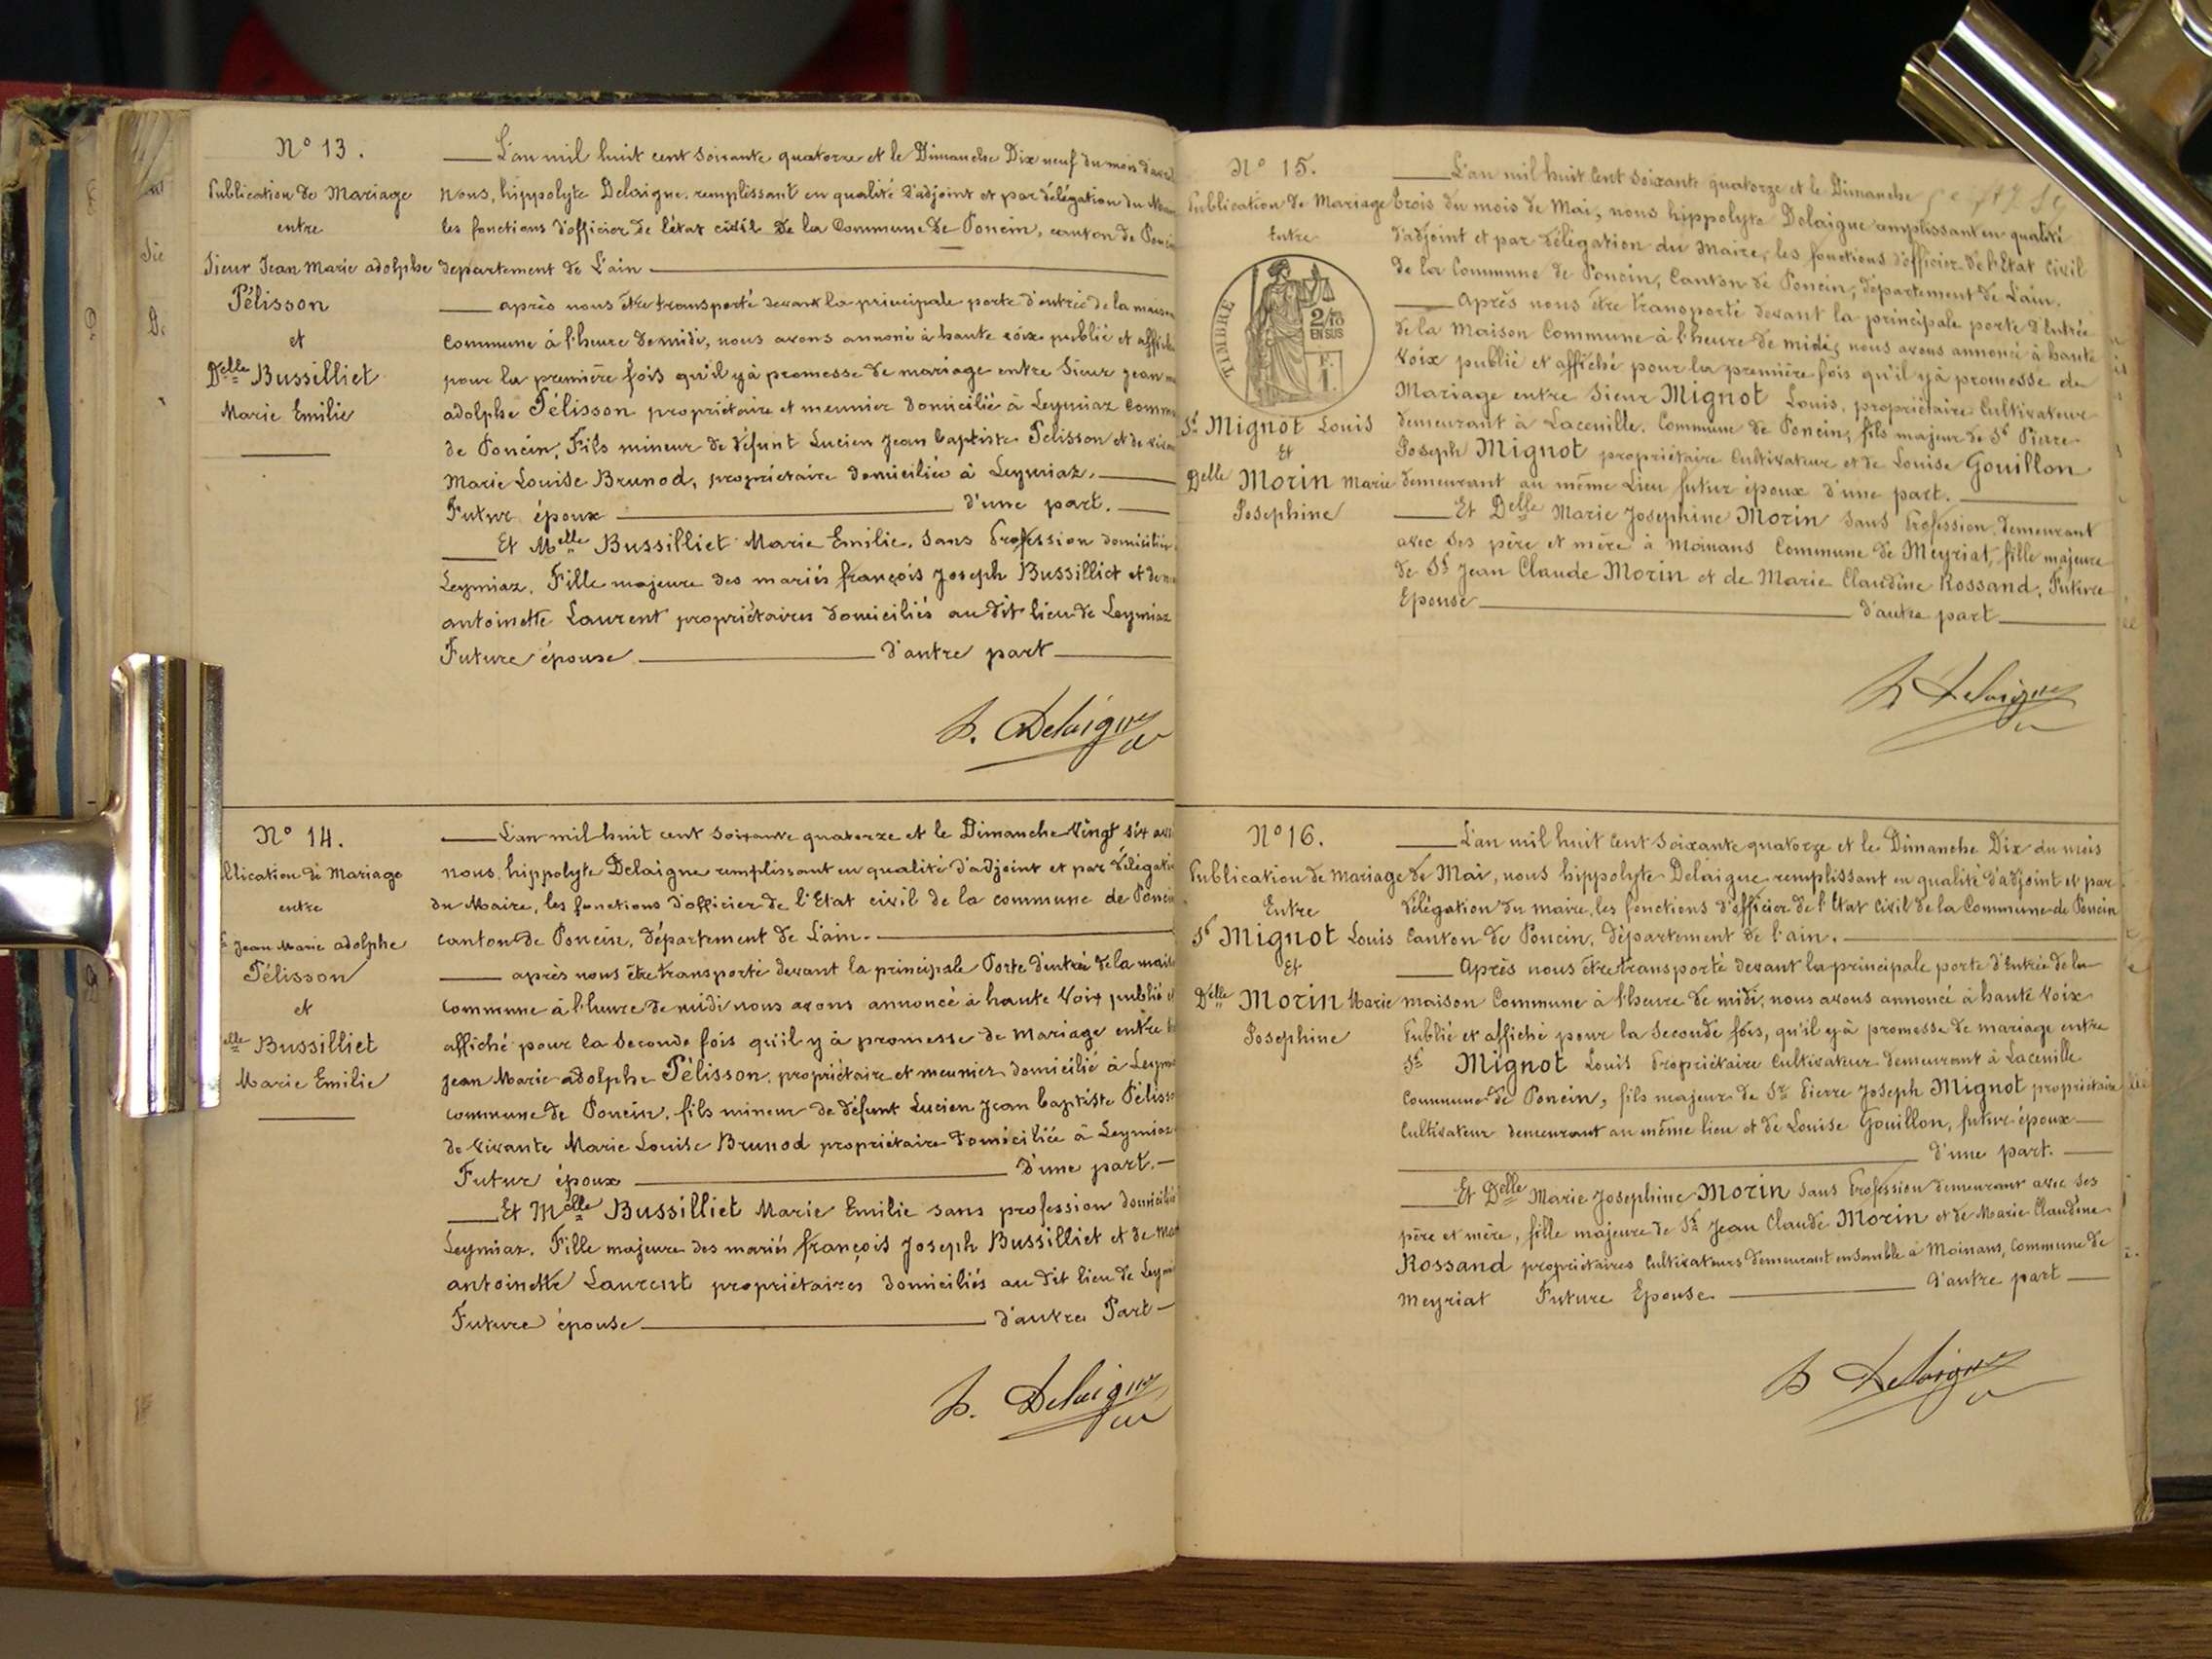 N° 13.
Publication de Mariage
entre
Sieur Jean Marie adolphe
Pélisson
et
Delle Bussilliet
Marie Emilie
L'an mil huit cent soixante quatorze et le Dimanche Dix neuf du mois d'avril
nous, hippolyte Delaigue, remplissant en qualité d'adjoint et par délégation du
les fonctions d'officier de l'état civil de la Commune de Poncin, canton de Poncin
departement de L'ain
après nous être transporté devant la principale porte d'entrée de la maison
Commune à l'heure de midi, nous avons annoné à haute voix publié et affiché
pour la première fois qu'il y à promesse de mariage entre Sieur jean
adolphe Pélisson propriétaire et meunier domicilié à Leymiaz
de Poncin, Fils mineur de défunt Lucien Jean baptiste Pelisson et de
Marie Louise Brunod, propriétaire domiciliée à Leymiaz.
Futur époux d'une part.
Et Melle Bussilliet Marie Emilie, sans Profession domiciliée
Leymiaz, Fille majeure des mariés françois Joseph Bussilliet et de
antoinette Laurent propriétaires domiciliés au dit lieu de Leymiaz
Future épouse d'autre part
h. Delaigue
N° 14.
blication de Mariage
entre
Jean Marie adolphe
Pélisson
et
elle Bussilliet
Marie Emilie
L'an mil huit cent soixante quatorze et le Dimanche Vingt six
nous hippolyte Delaigue remplissant en qualité d'adjoint et par délégation
du Maire, les fonctions d'officier de l'Etat civil de la commune de Poncin
canton de Poncin, département de L'ain.
après nous être transporté devant la principale Porte d'entrée de la
commune à l'heure de midi nous avons annoncé à haute Voix publié
affiché pour la seconde fois qu'il y à promesse de Mariage entre
jean Marie adolphe Pélisson, propriétaire et meunier domicilié à
commune de Poncin, fils mineur de défunt Lucien Jean baptiste
de vivante Marie Louise Brunod propriétaire domiciliée à Leymiaz
Futur époux d'une part.
Et Melle Bussilliet Marie Emilie sans profession
Leymiaz, Fille majeure des mariés françois Joseph Bussilliet et de
antoinette Laurent propriétaires domiciliés au dit lieu de
Future épouse d'autre Part
h. Delaigue
N° 15.
Publication de Mariage
Entre
TIMBRE
2/10
EN SUS
F.
1.
St Mignot Louis
Et
Delle Morin Marie
Josephine
L'an mil huit Cent soixante quatorze et le Dimanche
trois du mois de Mai, nous hippolyte Delaigue remplissant en qualité
d'adjoint et par délégation du Maire, les fonctions d'officier de l'Etat Civil
de la Commune de Poncin, Canton de Poncin, département de L'ain.
Après nous être transporté devant la principale porte d'Entrée
de la Maison Commune à l'heure de midi, nous avons annoncé à haute
Voix publié et affiché pour la première fois qu'il y à promesse de
Mariage entre Sieur Mignot Louis, propriétaire Cultivateur
demeurant à Laceuille, Commune de Poncin, fils majeur de Sr Pierre
Joseph Mignot propriétaire Cultivateur et de Louise Gouillon
demeurant au même Lieu futur époux d'une part.
Et Delle Marie Josephine Morin sans Profession demeurant
avec ses père et mère à Moinans Commune de Meyriat, fille majeure
de Sr Jean Claude Morin et de Marie Claudine Rossand, Future
Epouse d'autre part
h Delaigue
N° 16.
Publication de Mariage
Entre
Sr Mignot Louis
Et
Delle Morin Marie
Josephine
L'an mil huit Cent soixante quatorze et le Dimanche Dix du mois
de Mai, nous hippolyte Delaigue remplissant en qualité d'adjoint et par
délégation du maire, les fonctions d'officier de l'Etat Civil de la Commune de Poncin
Canton de Poncin, département de l'ain.
Après nous être transporté devant la principale porte d'Entrée de la
maison Commune à l'heure de midi, nous avons annoncé à haute Voix
Publié et affiché pour la seconde fois, qu'il y à promesse de mariage entre
Sr Mignot Louis Propriétaire Cultivateur demeurant à Laceuille
Commune de Poncin, fils majeur de Sr Pierre Joseph Mignot propriétaire
Cultivateur demeurant au même lieu et de Louise Gouillon, futur époux
d'une part.
Et Delle Marie Josephine Morin sans Profession demeurant avec ses
père et mère, fille majeure de Sr Jean Claude Morin et de Marie Claudine
Rossand propriétaires Cultivateurs demeurant ensemble à Moinans, Commune de
Meyriat Future Epouse d'autre part
h Delaigue